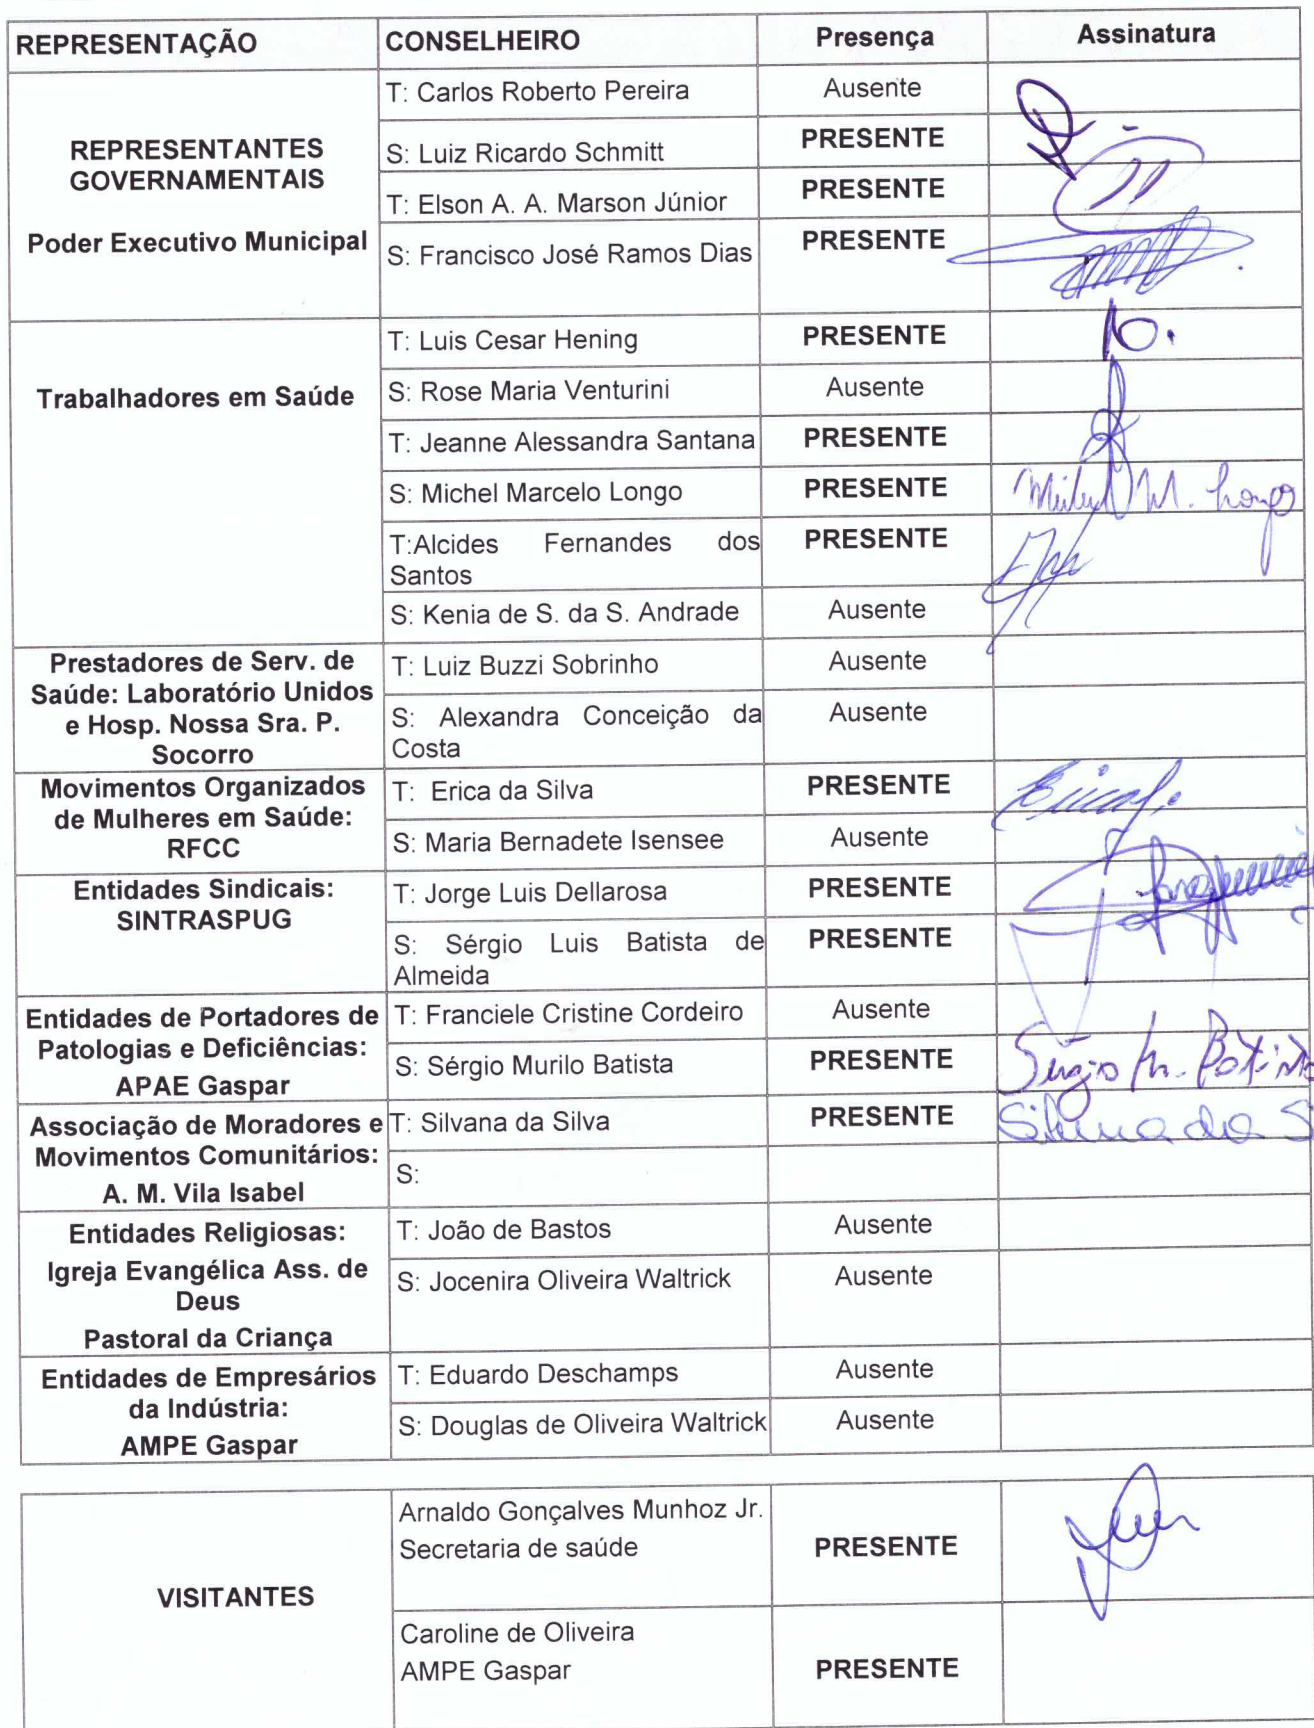 REPRESENTAÇÃO CONSELHEIRO Presença Assinatura
REPRESENTANTES
GOVERNAMENTAIS
Poder Executivo Municipal
T: Carlos Roberto Pereira Ausente
S: Luiz Ricardo Schmitt PRESENTE
T: Elson A. A. Marson Júnior PRESENTE
S: Francisco José Ramos Dias PRESENTE
Trabalhadores em Saúde
T: Luis Cesar Hening PRESENTE
S: Rose Maria Venturini Ausente
T: Jeanne Alessandra Santana PRESENTE
S: Michel Marcelo Longo PRESENTE Michel M. Longo
T:Alcides Fernandes dos
Santos PRESENTE
S: Kenia de S. da S. Andrade Ausente
Prestadores de Serv. de
Saúde: Laboratório Unidos
e Hosp. Nossa Sra. P.
Socorro
T: Luiz Buzzi Sobrinho Ausente
S: Alexandra Conceição da
Costa Ausente
Movimentos Organizados
de Mulheres em Saúde:
RFCC
T: Erica da Silva PRESENTE
S: Maria Bernadete Isensee Ausente
Entidades Sindicais:
SINTRASPUG
T: Jorge Luis Dellarosa PRESENTE
S: Sérgio Luis Batista de
Almeida PRESENTE
Entidades de Portadores de
Patologias e Deficiências:
APAE Gaspar
T: Franciele Cristine Cordeiro Ausente
S: Sérgio Murilo Batista PRESENTE Sérgio M. Batista
Associação de Moradores e
Movimentos Comunitários:
A. M. Vila Isabel
T: Silvana da Silva PRESENTE Silvana da S
S:
Entidades Religiosas:
Igreja Evangélica Ass. de
Deus
Pastoral da Criança
T: João de Bastos Ausente
S: Jocenira Oliveira Waltrick Ausente
Entidades de Empresários
da Indústria:
AMPE Gaspar
T: Eduardo Deschamps Ausente
S: Douglas de Oliveira Waltrick Ausente
VISITANTES
Arnaldo Gonçalves Munhoz Jr.
Secretaria de saúde PRESENTE
Caroline de Oliveira
AMPE Gaspar PRESENTE